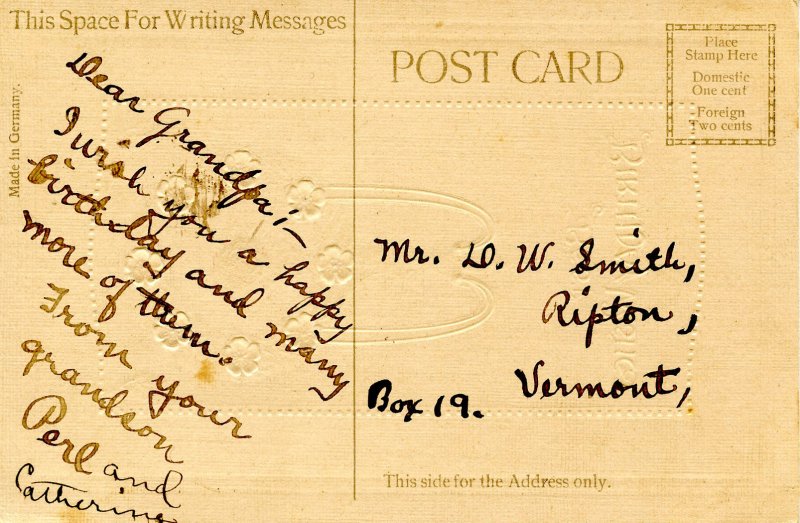 This Space For Writing Messages
Made in Germany.
Dear Grandpa;—
I wish you a happy
birthday and many
more of them.
From your
grandson
Perl and
Catherine
POST CARD
Place
Stamp Here
Domestic
One cent
Foreign
Two cents
Mr. D. W. Smith,
Ripton,
Vermont,
Box 19.
This side for the Address only.